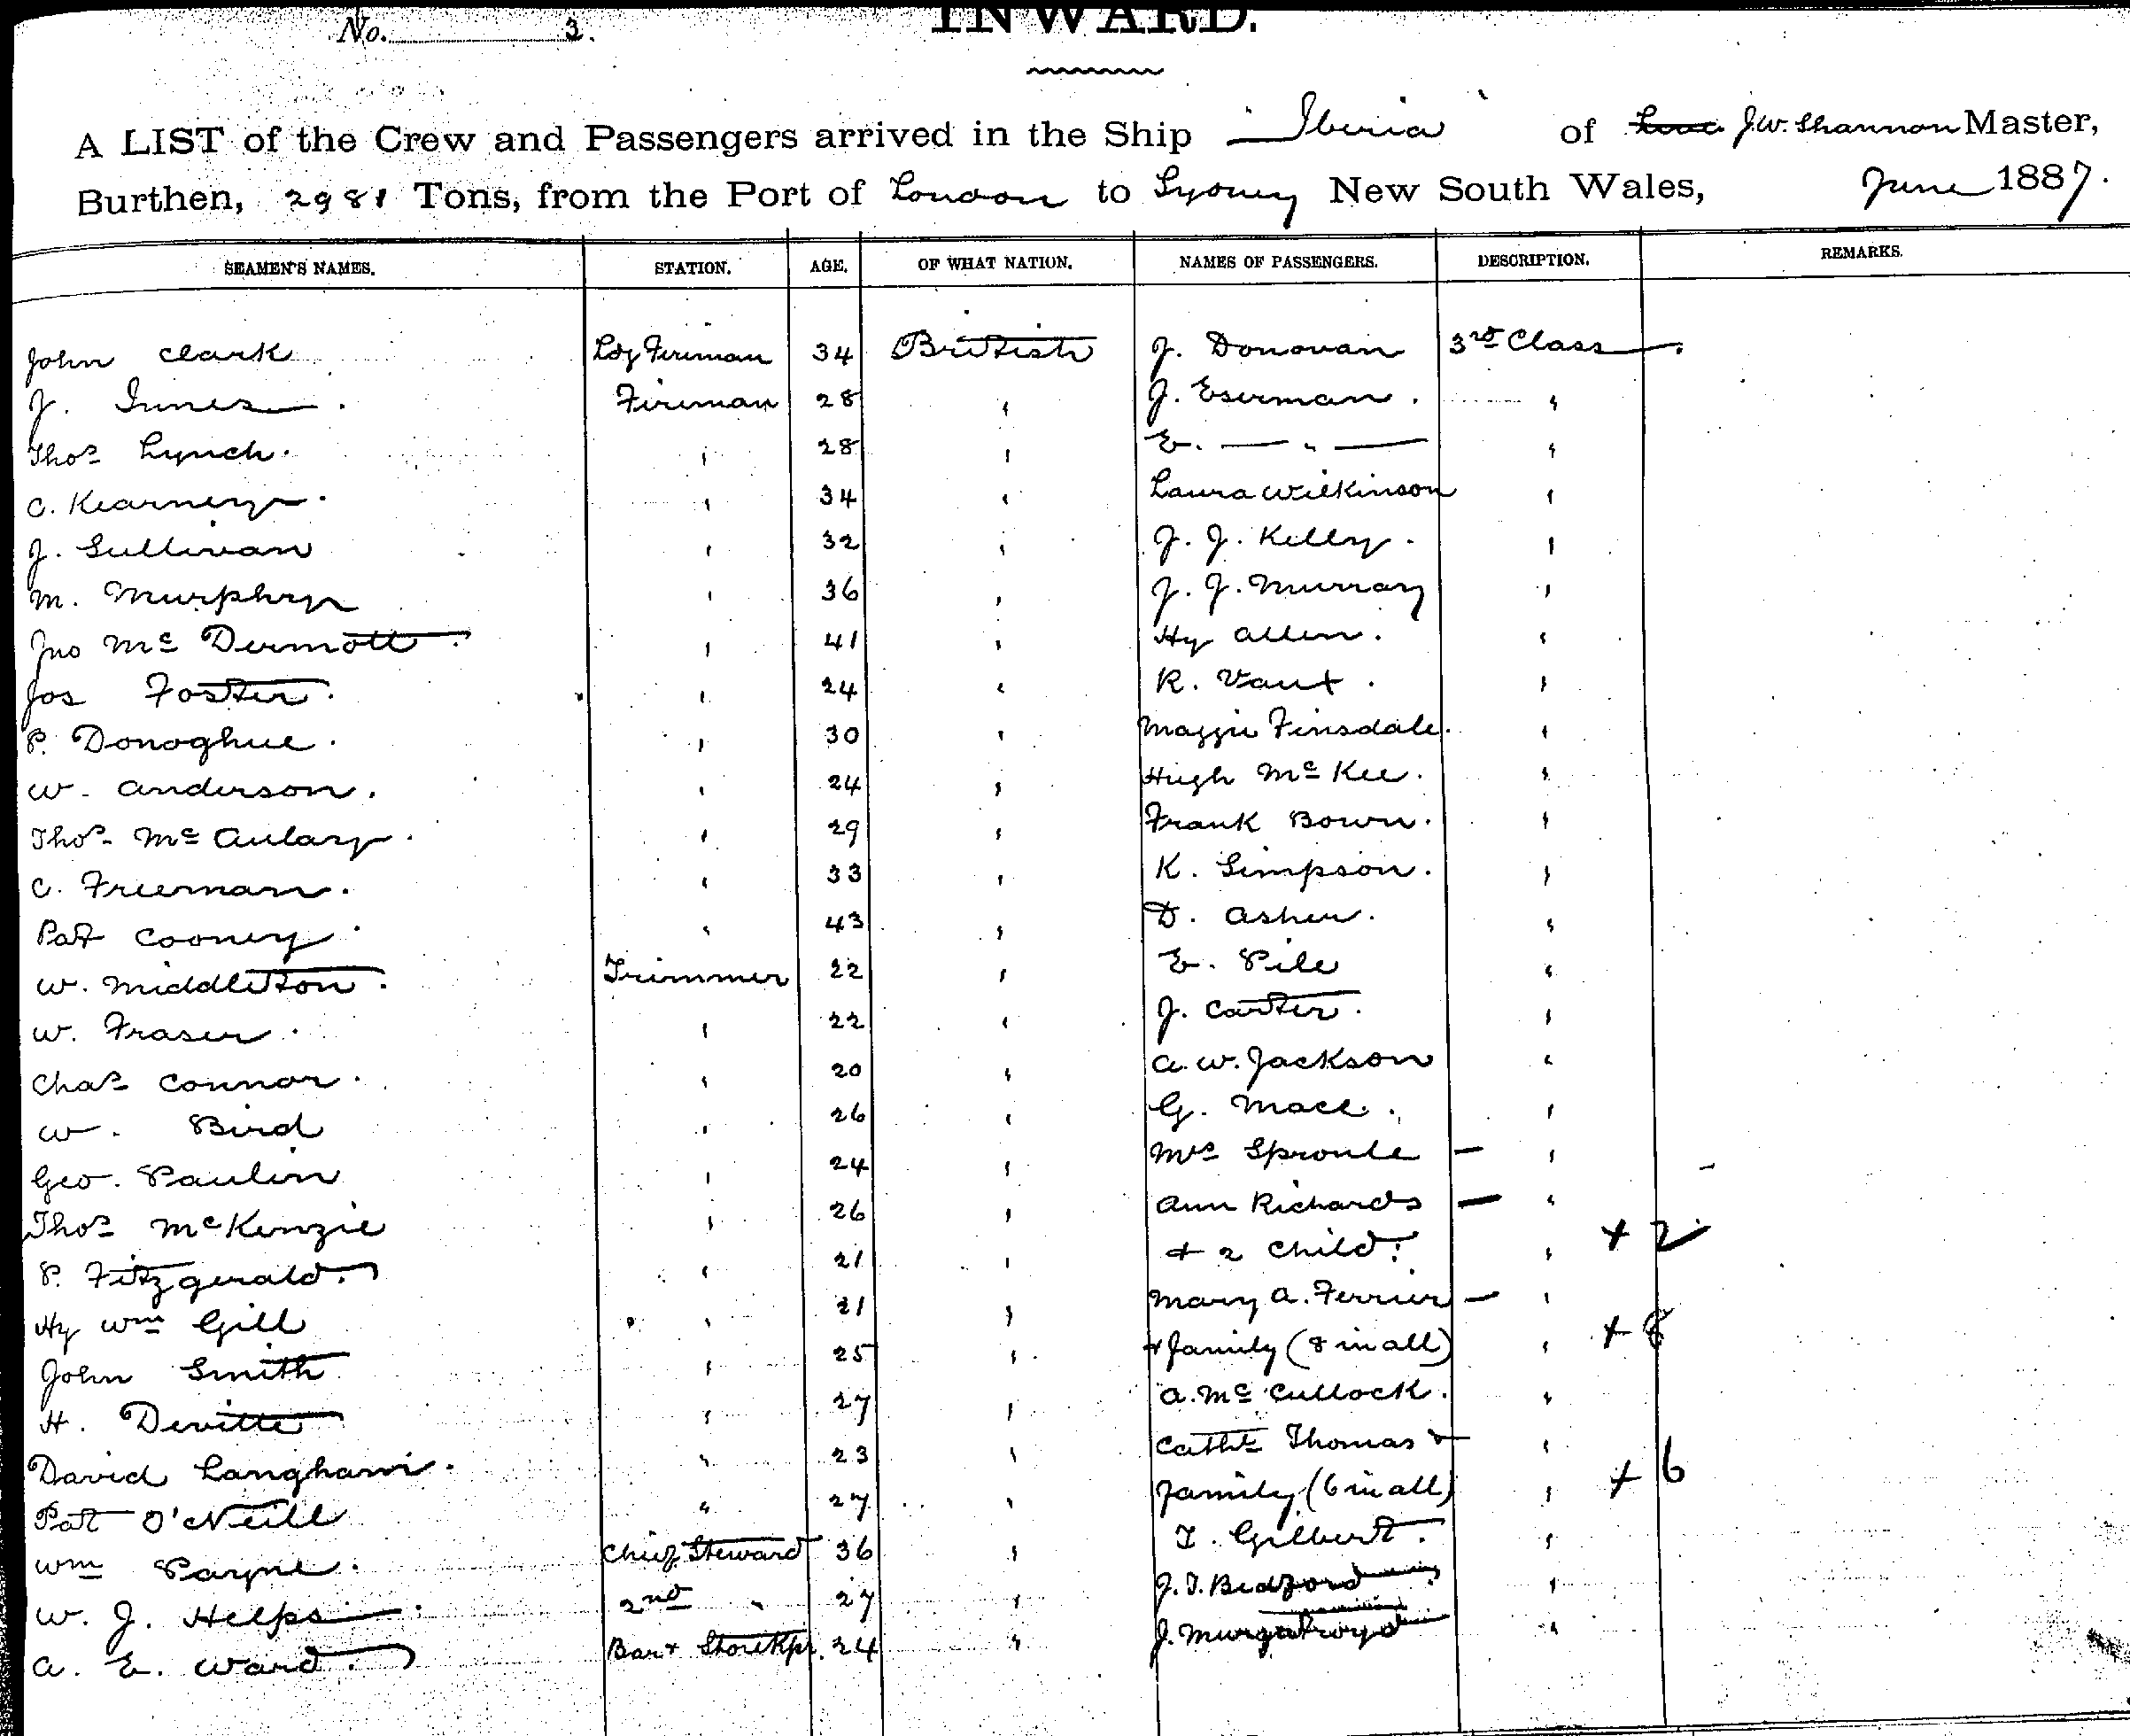 No. 3.
INWARD.
A LIST of the Crew and Passengers arrived in the Ship Iberia of J.W. Shannon Master,
Burthen, 2981 Tons, from the Port of London to Sydney New South Wales, June 1887.
SEAMEN'S NAMES. STATION. AGE. OF WHAT NATION. NAMES OF PASSENGERS. DESCRIPTION. REMARKS.
John Clark Ldg Fireman 34 British J. Donovan 3rd Class
J. Innes Fireman 28 " J. Eserman "
Thos Lynch " 28 " E. — " — "
C. Kearney " 34 " Laura Wilkinson "
J. Sullivan " 32 " J. J. Kelly "
M. Murphy " 36 " J. J. Murray "
Jno Mc Dermott " 41 " Hy Allen "
Jos Foster " 24 " R. Vaux "
P. Donoghue " 30 " Maggie Tinsdale "
W. Anderson " 24 " Hugh Mc Kee "
Thos Mc Aulay " 29 " Frank Bown "
C. Freeman " 33 " K. Simpson "
Pat Cooney " 43 " D. Asher "
W. Middleton Trimmer 22 " E. Pile "
W. Fraser " 22 " J. Carter "
Chas Connor " 20 " A. W. Jackson "
W. Bird " 26 " G. Mace "
Geo. Paulin " 24 " Mrs Sproule — "
Thos McKenzie " 26 " Ann Richards — "
P. Fitzgerald " 21 " + 2 Child: " + 2
Hy Wm Gill " 21 " Mary A. Ferrier — "
John Smith " 25 " + family (8 in all) " + 8
H. Devitte " 27 " A. Mc Cullock "
David Langham " 23 " Cathe Thomas + "
Pat O'Neill " 27 " family (6 in all) " + 6
Wm Payne Chief Steward 36 " T. Gilbert "
W. J. Helps 2nd " 27 " J. T. Bedford "
A. E. Ward Bar + Storekpr. 24 " J. Murgatroyd "